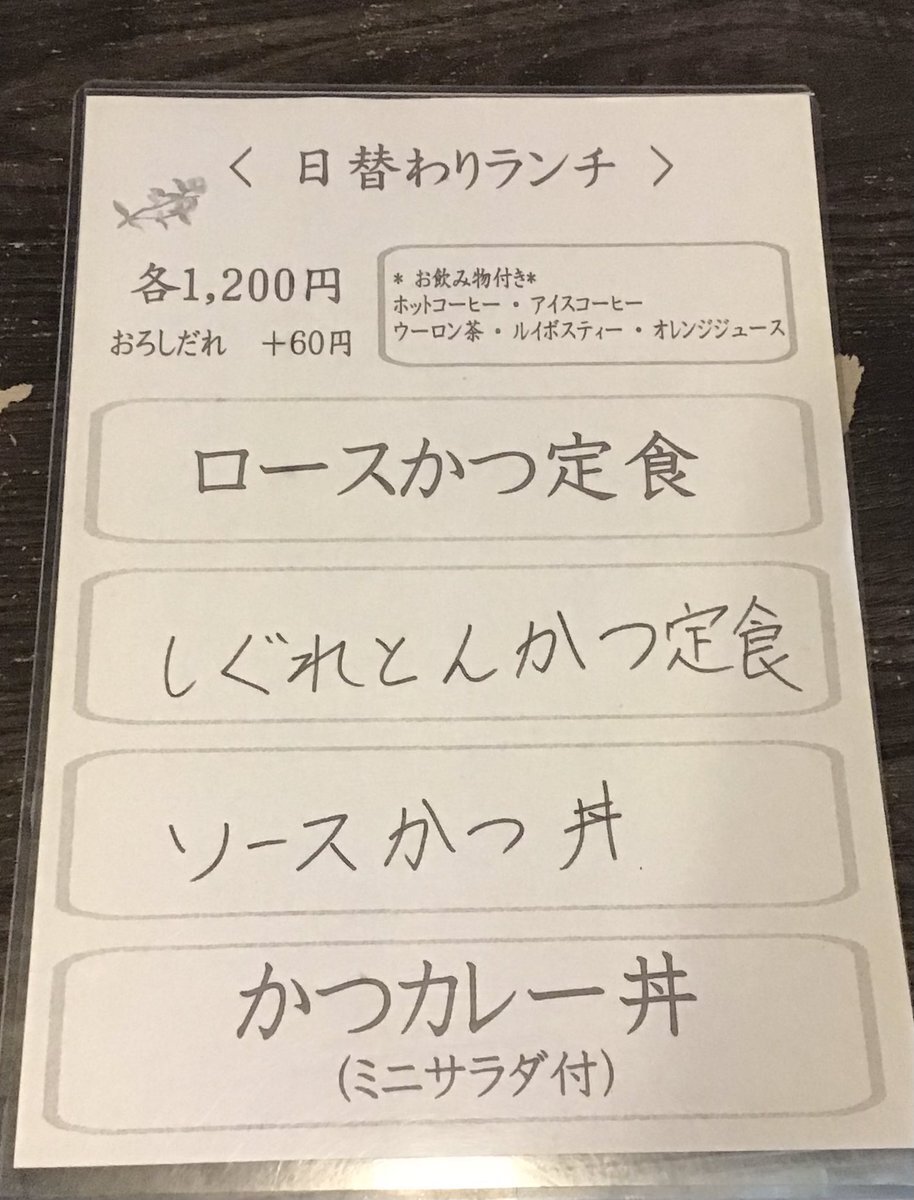 〈 日替わりランチ 〉
各1,200円
おろしだれ ＋60円
* お飲み物付き*
ホットコーヒー・アイスコーヒー
ウーロン茶・ルイボスティー・オレンジジュース
ロースかつ定食
しぐれとんかつ定食
ソースかつ丼
かつカレー丼
(ミニサラダ付)